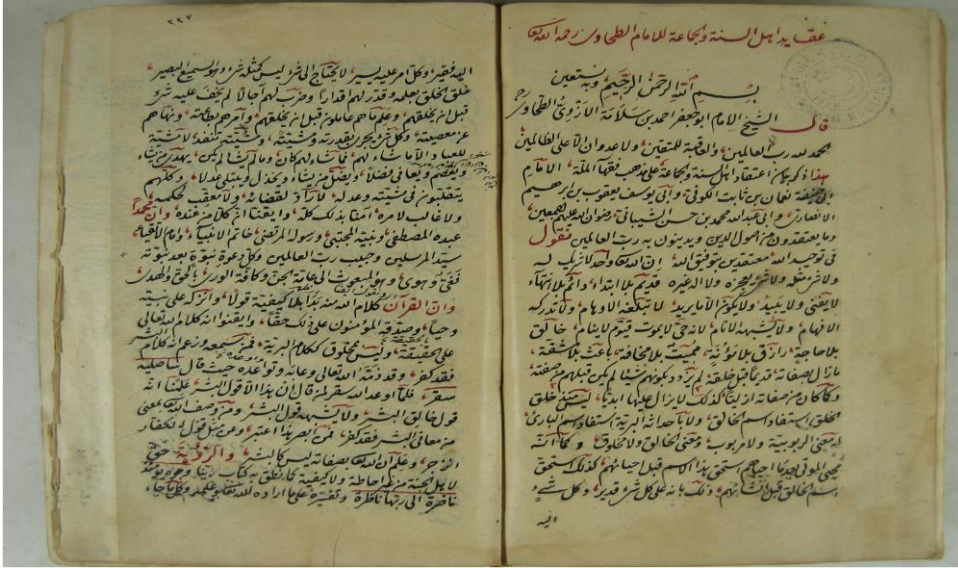 عقايد اهل السنة والجماعة للامام الطحاوى رحمة الله
بسم الله الرحمن الرحيم وبه نستعين
قال الشيخ الامام ابو جعفر احمد بن سلامة الازدى الطحاوى
الحمد لله رب العالمين والعاقبة للمتقين ولا عدوان الا على الظالمين
هذا ذكر بيان اعتقاد اهل سنة وجماعة على مذهب فقهاء الملة الامام
ابى حنيفة نعمان بن ثابت الكوفى وابى يوسف يعقوب بن ابرهيم
الانصارى وابى عبد الله محمد بن حسن الشيبانى رضوان الله عليهم اجمعين
وما يعتقدون من اصول الدين ويدينون به رب العالمين نقول
فى توحيد الله معتقدين بتوفيق الله ان الله واحد لا شريك له
ولا شئ مثله ولا شئ يعجزه ولا اله غيره قديم بلا ابتداء ودائم بلا انتهاء
لا يفنى ولا يبيد ولا يكون الا ما يريد لا تبلغه الاوهام ولا تدركه
الافهام ولا تشبه الانام حى لا يموت قيوم لا ينام خالق
بلا حاجة رازق بلا مؤنة مميت بلا مخافة باعث بلا مشقة
ما زال بصفاته قديما قبل خلقه لم يزدد بكونهم شيئا لم يكن قبلهم من صفته
وكما كان من صفاته ازليا كذلك لا يزال عليها ابديا ليس منذ خلق
الخلق استفاد اسم الخالق ولا باحداثه البرية استفاد اسم البارئ
له معنى الربوبية ولا مربوب ومعنى الخالق ولا مخلوق وكما انه
يحيى الموتى بعد ما احياهم استحق بهذا الاسم قبل احيائهم كذلك استحق
اسم الخالق قبل انشائهم ذلك بانه على كل شئ قدير وكل شئ
اليه
٢٢٧
اليه فقير وكل امر عليه يسير لا يحتاج الى شئ ليس كمثله شئ وهو السميع البصير
خلق الخلق بعلمه وقدر لهم اقدارا وضرب لهم آجالا لم يخف عليه شئ
قبل ان يخلقهم وعلم ما هم عاملون قبل ان يخلقهم وامرهم بطاعته ونهاهم
عن معصيته وكل شئ يجرى بقدرته ومشيته ومشيته تنفذ لا مشية
للعباد الا ما شاء لهم فما شاء لهم كان وما لم يشأ لم يكن يهدى من يشاء
ويعصم ويعافى فضلا ويضل من يشاء ويخذل ويبتلى عدلا وكلهم
يتقلبون فى مشيته وعدله لا راد لقضائه ولا معقب لحكمه
ولا غالب لامره امنا بذلك كله وايقنا ان كلا من عنده وان محمدا
عبده المصطفى ونبيه المجتبى ورسوله المرتضى خاتم الانبياء وامام الاتقياء
سيد المرسلين وحبيب رب العالمين وكل دعوة نبوة بعد نبوته
فغى وهوى وهو المبعوث الى عامة الجن وكافة الورى بالحق والهدى
وان القرآن كلام الله منه بدا بلا كيفية قولا وانزله على نبيه
وحيا وصدقه المؤمنون على ذلك حقا وايقنوا انه كلام الله تعالى
على الحقيقة وليس بمخلوق ككلام البرية فمن سمعه وزعم انه كلام البشر
فقد كفر وقد ذمه الله تعالى وعابه وتواعده حيث قال سأصليه
سقر فلما اوعد الله سقر لمن قال ان هذا الا قول البشر علمنا انه
قول خالق البشر ولا يشبه قول البشر ومن وصف الله بمعنى
من معانى البشر فقد كفر فمن ابصر هذا اعتبر وعن مثل قول الكفار
انزجر وعلم ان الله بصفاته ليس كالبشر والرؤية حق
لاهل الجنة من غير احاطة ولا كيفية كما نطق به كتاب ربنا وجوه يومئذ
ناضرة الى ربها ناظرة وتفسيره على ما اراده الله تعالى وعلمه وكل ما جاء